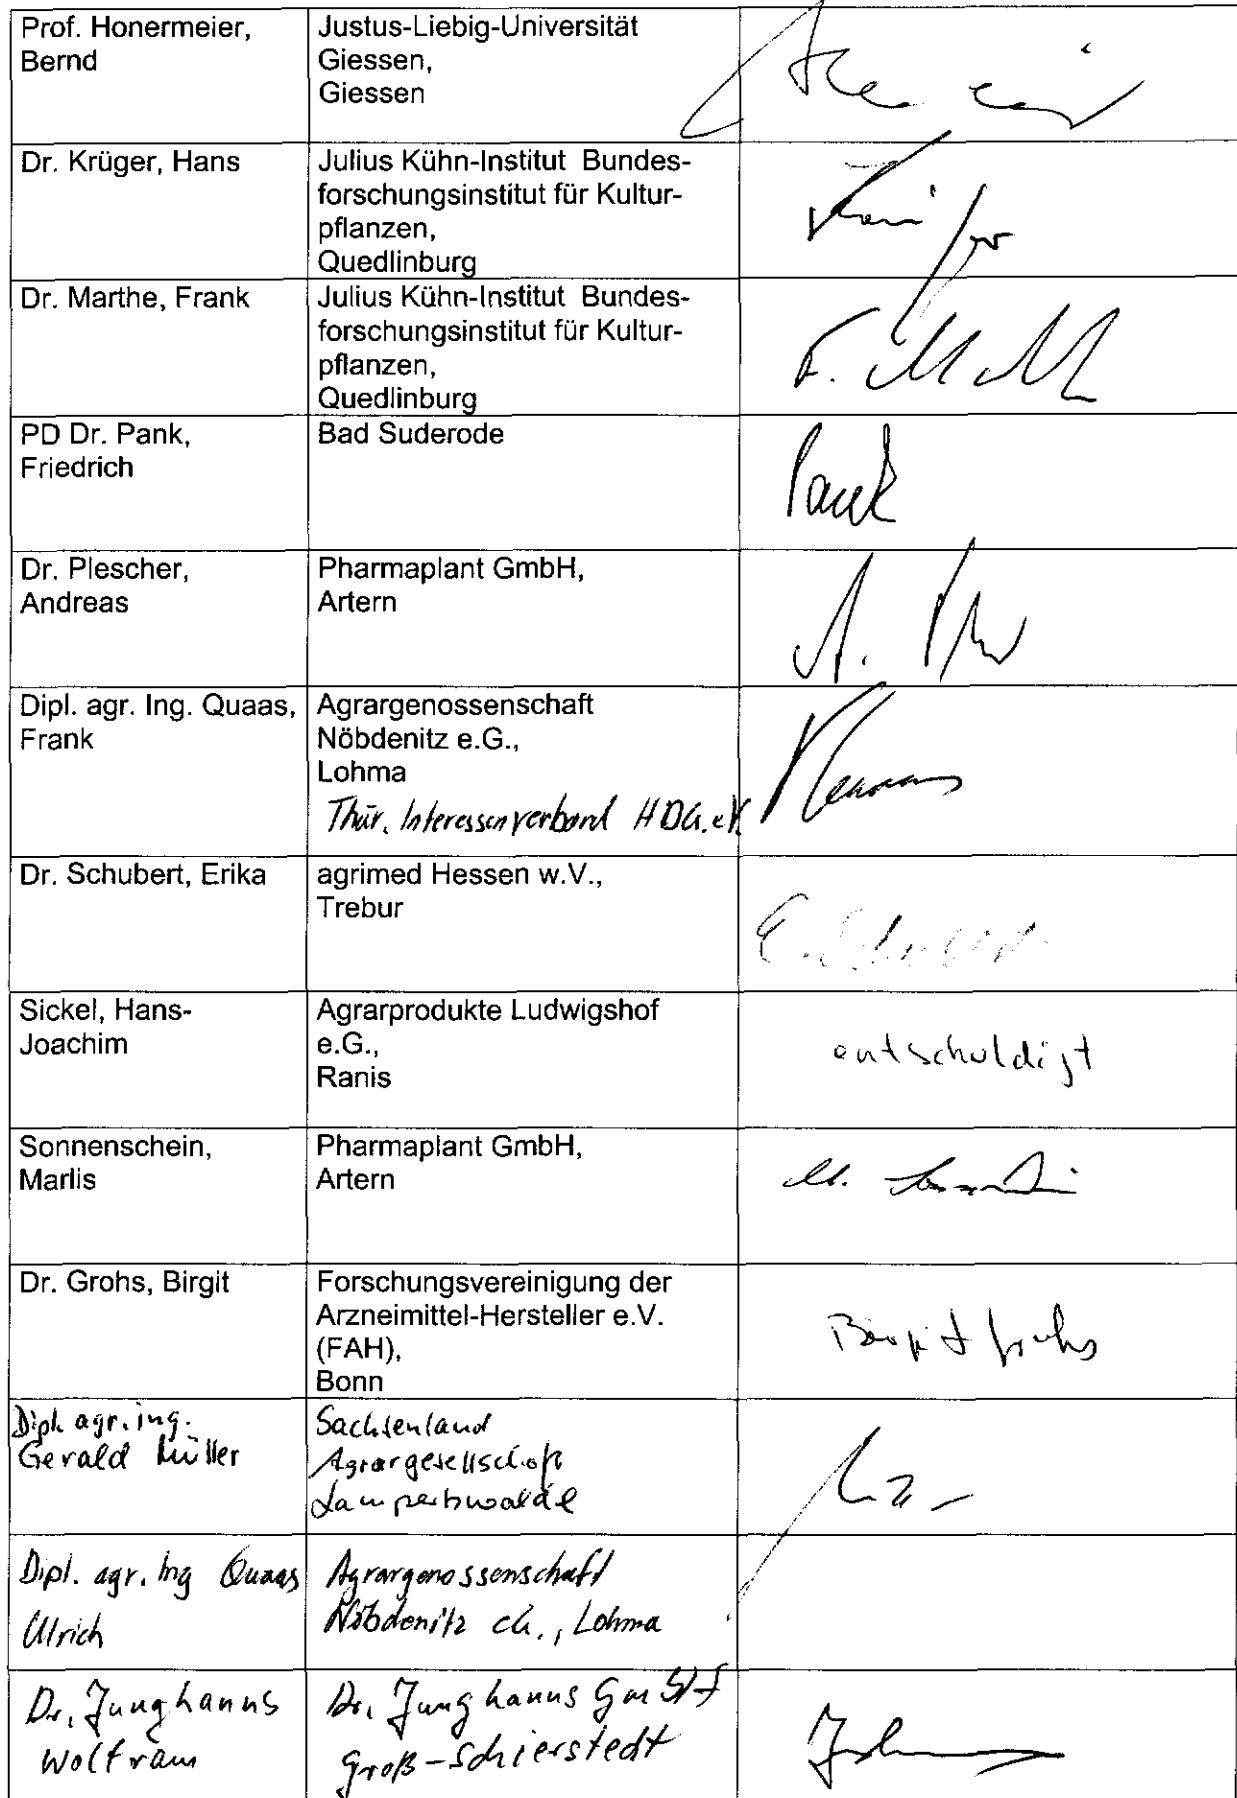 Prof. Honermeier,
Bernd
Justus-Liebig-Universität
Giessen,
Giessen
Dr. Krüger, Hans
Julius Kühn-Institut Bundes-
forschungsinstitut für Kultur-
pflanzen,
Quedlinburg
Dr. Marthe, Frank
Julius Kühn-Institut Bundes-
forschungsinstitut für Kultur-
pflanzen,
Quedlinburg
F.
PD Dr. Pank,
Friedrich
Bad Suderode
Pank
Dr. Plescher,
Andreas
Pharmaplant GmbH,
Artern
A.
Dipl. agr. Ing. Quaas,
Frank
Agrargenossenschaft
Nöbdenitz e.G.,
Lohma
Thür. Interessenverband HDG. e.V.
Dr. Schubert, Erika
agrimed Hessen w.V.,
Trebur
E. Schubert
Sickel, Hans-
Joachim
Agrarprodukte Ludwigshof
e.G.,
Ranis
entschuldigt
Sonnenschein,
Marlis
Pharmaplant GmbH,
Artern
M.
Dr. Grohs, Birgit
Forschungsvereinigung der
Arzneimittel-Hersteller e.V.
(FAH),
Bonn
Birgit Grohs
Dipl. agr. ing.
Gerald Müller
Sachsenland
Agrargesellschaft
Lampertswalde
Dipl. agr. Ing Quaas
Ulrich
Agrargenossenschaft
Nöbdenitz eG., Lohma
Dr. Junghanns
Wolfram
Dr. Junghanns GmbH
Groß-Schierstedt